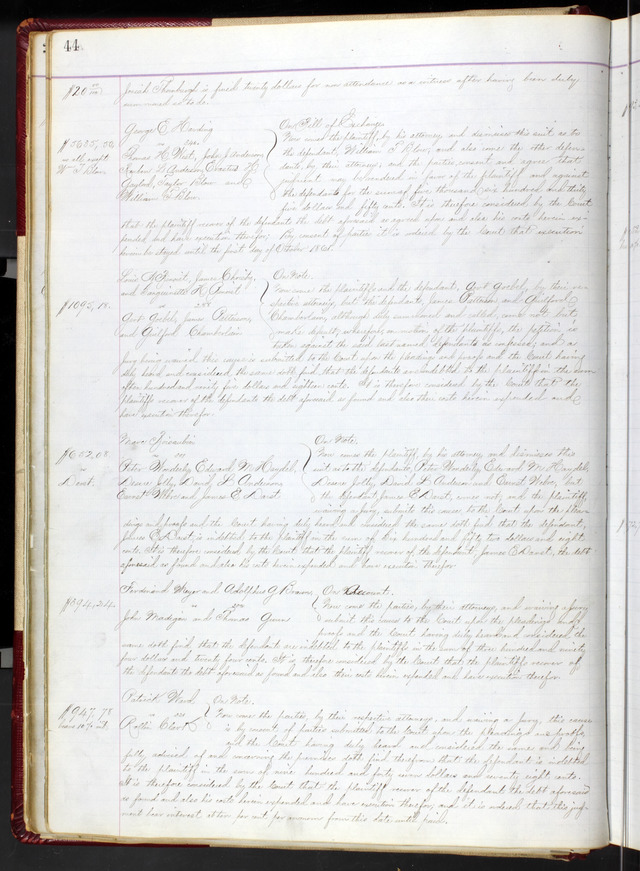 44
$20.00 Josiah Thornburgh is fined twenty dollars for non attendance as a witness after having been duly
summoned so to do.
George E. Harding
On Bill of Exchange.
$5635,50 vs
Now comes the plaintiff, by his attorney and dismisses this suit as to
as to all except Thomas H. West, John J. Anderson,
the defendant, William T. Blow, and also come the other defen-
Wm T. Blow.
dants by their attorneys, and the parties consent and agree that
judgment may be rendered in favor of the plaintiff and against
Taylor Blow and
the defendants for the sum of five thousand six hundred and thirty
William T. Blow.
five dollars and fifty cents. It is therefore considered by the Court
that the plaintiff recover of the defendants the debt aforesaid as agreed upon and also his costs herein ex-
pended and have execution therefor. By consent of parties it is ordered by the Court that execution
herein be stayed until the first day of October 1861.
James Christy,
On Note.
and
Now come the plaintiffs and the defendant, Gert Goebel, by their re-
$1095,18. vs
spective attorneys, but the defendants, James Patterson and Guilford
Gert Goebel, James Patterson,
Chamberlain, although duly summoned and called, come not but
and Guilford Chamberlain
make default; wherefore, on motion of the plaintiffs, the petition is
taken against the said last named defendants as confessed; and a
jury being waived, this cause is submitted to the Court upon the pleadings and proofs and the Court having
duly heard and considered the same doth find, that the defendants are indebted to the plaintiffs in the sum
of ten hundred and ninety five dollars and eighteen cents. It is therefore considered by the Court that the
plaintiffs recover of the defendants the debt aforesaid as found and also their costs herein expended and
have execution therefor.
On Note.
$652.08 vs
Now comes the plaintiff, by his attorney and dismisses this
vs Peter Wonderly, Edward M.
suit as to the defendants, Peter Wonderly, Edward M.
Daust. Desire Jolly, David L. Anderson,
Desire Jolly, David L. Anderson and Ernest Weber, but
Ernest Weber and James E. Daust.
the defendant James E. Daust, comes not, and the plaintiff,
waiving a jury, submits this cause to the Court upon the plea-
dings and proofs and the Court having duly heard and considered the same doth find that the defendant,
James E. Daust, is indebted to the plaintiff in the sum of Six hundred and fifty two dollars and eight
cents. It is therefore considered by the Court that the plaintiff recover of the defendant, James E. Daust, the debt
aforesaid as found and also his costs herein expended and have execution therefor.
Ferdinand Meyer and Adolphus G. Braun
On Account.
$394,24. vs
Now come the parties, by their attorneys, and waiving a jury
John Madigan and Thomas
submit this cause to the Court upon the pleadings and
proofs and the Court having duly heard and considered the
same doth find, that the defendants are indebted to the plaintiffs in the sum of three hundred and ninety
four dollars and twenty four cents. It is therefore considered by the Court that the plaintiffs recover of
the defendants the debt aforesaid as found and also their costs herein expended and have execution therefor.
Patrick Ward
On Note.
$947,78 vs
Now come the parties, by their respective attorneys, and waiving a jury, this cause
bears 10% int.
is by consent of parties submitted to the Court upon the pleadings and proofs,
and the Court having duly heard and considered the same and being
fully advised of and concerning the premises doth find therefrom that the defendant is indebted
to the plaintiff in the sum of nine hundred and forty seven dollars and seventy eight cents.
It is therefore considered by the Court that the plaintiff recover of the defendant the debt aforesaid
as found and also his costs herein expended and have execution therefor, and it is ordered that this judg-
ment bear interest at ten per cent. per annum from this date until paid.